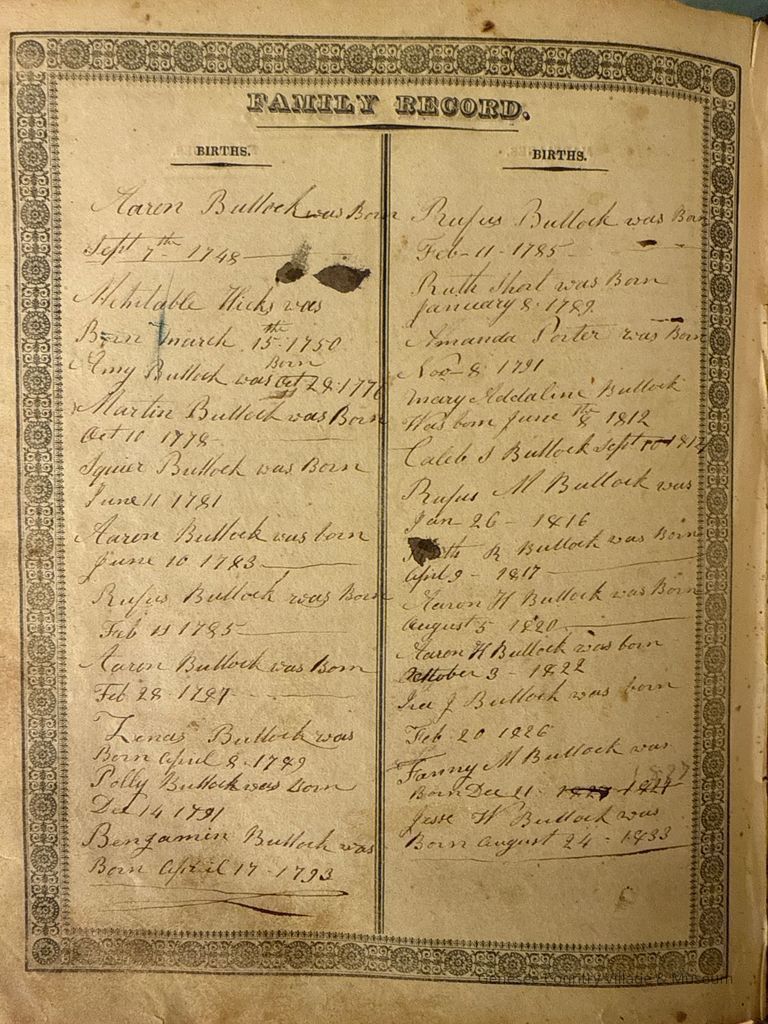 FAMILY RECORD.
BIRTHS.
Aaron Bullock was Born
Sept 7th - 1748
Mehitable Hicks was
Born march 15th 1750
Amy Bullock was Born Oct 28 1776
Martin Bullock was Born
Oct 10 1778
Squier Bullock was Born
June 11 1781
Aaron Bullock was born
June 10 1783
Rufus Bullock was Born
Feb 11 1785
Aaron Bullock was Born
Feb 28 1787
Zenas Bullock was
Born April 8 1789
Polly Bullock was Born
Dec 14 1791
Benjamin Bullock was
Born April 17 - 1793
BIRTHS.
Rufus Bullock was Born
Feb - 11 - 1785
Ruth Short was Born
January 8 1789
Amanda Porter was Born
Nov - 8 1791
Mary Addaline Bullock
Was born June 8th 1812
Caleb S Bullock Sept 10 1814
Rufus M Bullock was
Jan 26 - 1816
R Bullock was Born
April 9 - 1817
Aaron H Bullock was Born
August 5 1820
Aaron H Bullock was born
October 3 - 1822
Ira J Bullock was born
Feb 20 1826
Fanny M Bullock was
Born Dec 11 1827
Jesse W Bullock was
Born August 24 - 1833
Genesee Country Village & Museum